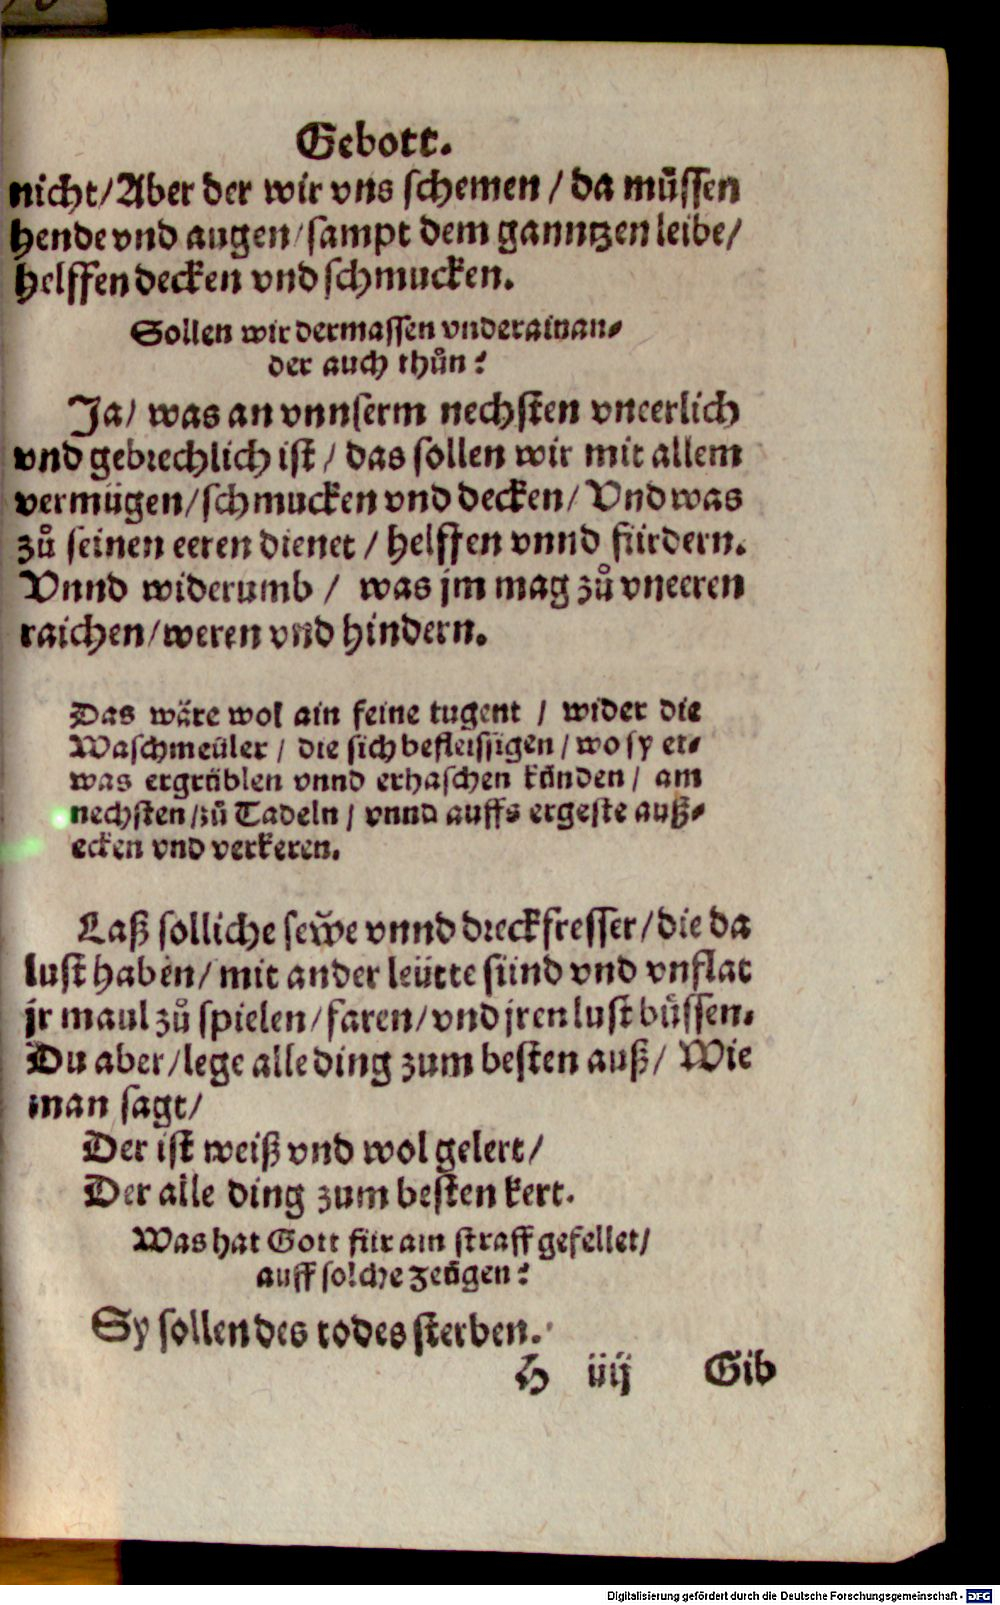 Gebott.
nicht/ Aber der wir vns schemen / da můssen
hende vnd augen/ sampt dem ganntzen leibe/
helffen decken vnd schmucken.
Sollen wir dermassen vnderainan-
der auch thůn?
Ja/ was an vnnserm nechsten vneerlich
vnd gebrechlich ist / das sollen wir mit allem
vermügen/ schmucken vnd decken/ Vnd was
zů seinen eeren dienet / helffen vnnd fürdern.
Vnnd widerumb / was jm mag zů vneeren
raichen/ weren vnd hindern.
Das wäre wol ain feine tugent / wider die
Waschmeüler / die sich befleissigen / wo sy et-
was ergrüblen vnnd erhaschen künden / am
nechsten / zů Tadeln / vnnd auffs ergeste auß-
ecken vnd verkeren.
Laß solliche sew̌e vnnd dreckfresser/ die da
lust haben/ mit ander leütte sünd vnd vnflat
jr maul zů spielen/ faren/ vnd jren lust bůssen.
Du aber/ lege alle ding zum besten auß/ Wie
man sagt/
Der ist weiß vnd wol gelert/
Der alle ding zum besten kert.
Was hat Gott für ain straff gefellet/
auff solche zeügen?
Sy sollen des todes sterben.
H iiij Gib
Digitalisierung gefördert durch die Deutsche Forschungsgemeinschaft - DFG